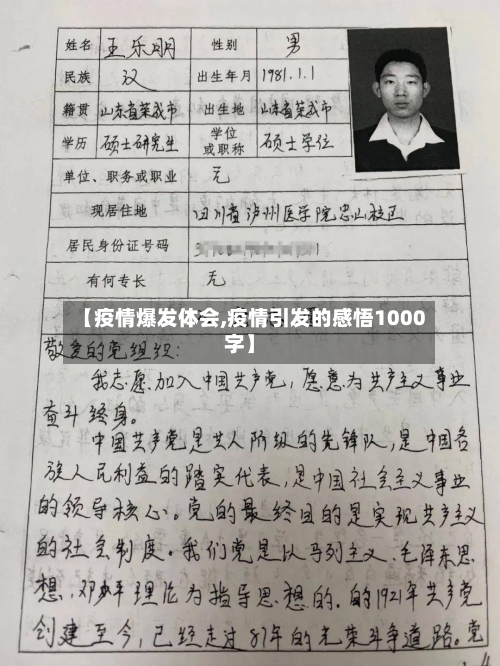 姓名 王乐明 性别 男
民族 汉 出生年月 1981.1.1
籍贯 山东省荣成市 出生地 山东省荣成市
学历 硕士研究生 学位或职称 硕士学位
单位、职务或职业 无
现居住地 四川省泸州医学院忠山校区
居民身份证号码
有何专长 无
【疫情爆发体会,疫情引发的感悟1000
字】
敬爱的党组织:
我志愿加入中国共产党,愿意为共产主义事业
奋斗终身。
中国共产党是工人阶级的先锋队,是中国各
族人民利益的踏实代表,是中国社会主义事业
的领导核心。党的最终目的是实现共产主义
的社会制度。我们党是以马列主义、毛泽东思
想,邓小平理论为指导思想的。的1921年共产党
创建至今,已经走过87年的光荣斗争道路。党